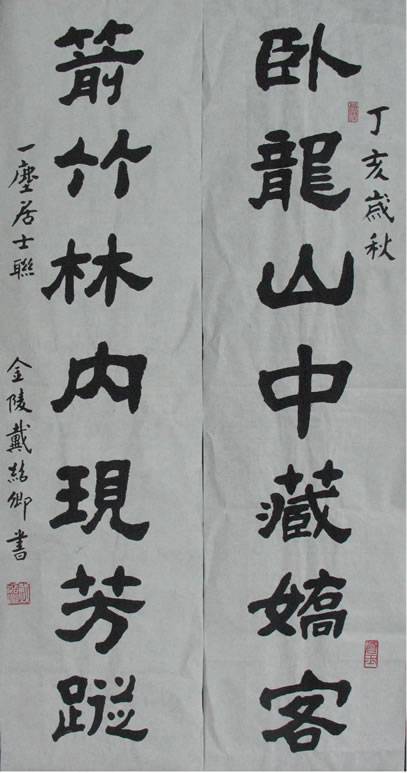 丁亥歲秋
卧龍山中藏嬌客
箭竹林内現芳蹤
一塵居士聯 金陵戴紹卿書